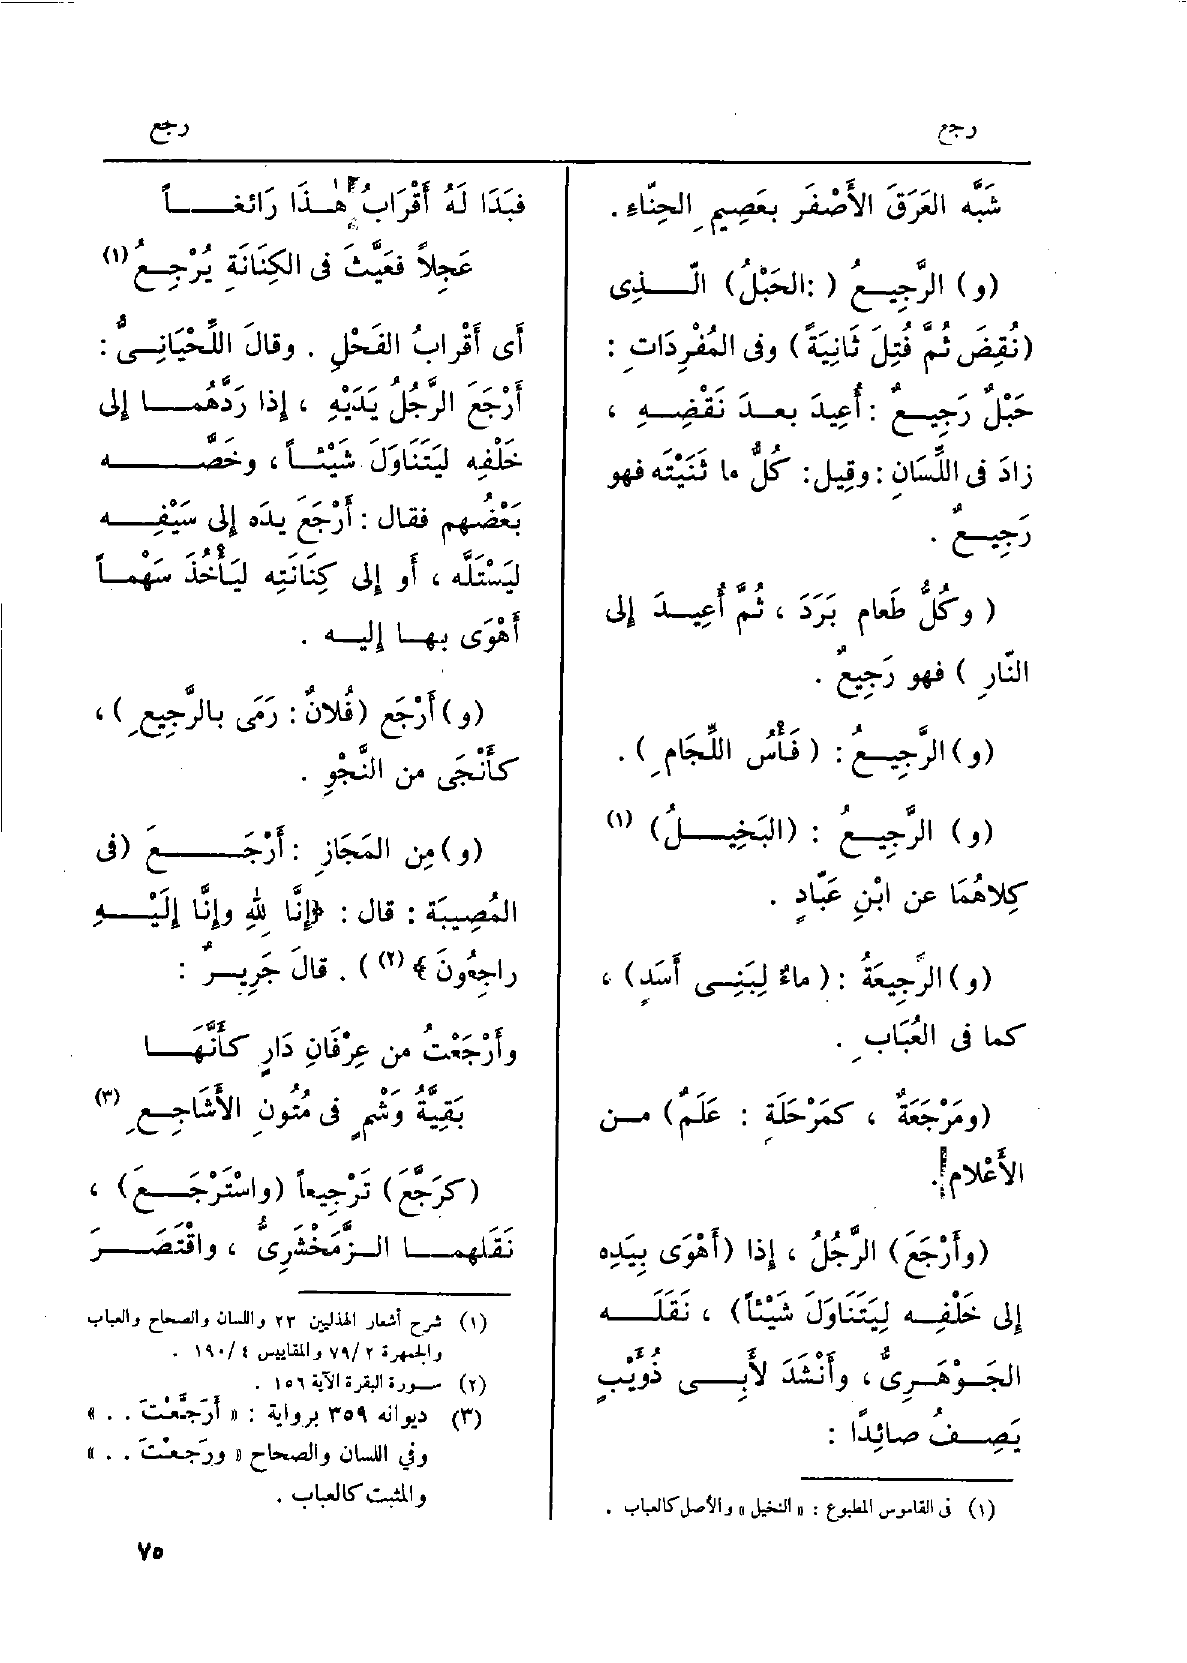 رجع
رجع
شَبَّه العَرَقَ الأَصْفَر بعَصِيمِ الحِنّاءِ .
(و) الرَّجِيعُ ( :الحَبْلُ) الَّذِى
(نُقِضَ ثُمَّ فُتِلَ ثَانِيَةً) وفى المُفْرَدَاتِ :
حَبْلٌ رَجِيعٌ : أُعِيدَ بعدَ نَقْضِهِ ،
زادَ فى اللِّسَانِ : وقِيل: كُلُّ ما ثَنَيْتَه فهو
رَجِيعٌ .
( وكُلُّ طَعامٍ بَرَدَ ، ثُمَّ أُعِيدَ إلى
النّارِ ) فهو رَجِيعٌ .
(و) الرَّجِيعُ : ( فَأْسُ اللِّجَامِ ) .
(و) الرَّجِيعُ : (البَخِيلُ) (١)
كِلاهُمَا عن ابْنِ عَبّادٍ .
(و) الرَّجِيعَةُ : ( ماءٌ لِبَنِى أَسَدٍ) ،
كما فى العُبَابِ .
(ومَرْجَعَةٌ ، كمَرْحَلَةٍ : عَلَمٌ) من
الأَعْلام .
(وأَرْجَعَ) الرَّجُلُ ، إذا (أَهْوَى بِيَدِه
إلى خَلْفِه لِيَتَنَاوَلَ شَيْئاً) ، نَقَلَه
الجَوْهَرِىُّ ، وأَنْشَدَ لأَبِى ذُؤَيْبٍ
يَصِفُ صائِدًا :
(١) فى القاموس المطبوع : « النخيل » والأصل كالعباب .
فبَدَا لَهُ أَقْرَابُ هٰذَا رَائغاً
عَجِلاً فعَيَّثَ فى الكِنَانَةِ يُرْجِعُ (١)
أى أَقْرابُ الفَحْلِ . وقالَ اللِّحْيَانِىُّ :
أَرْجَعَ الرَّجُلُ يَدَيْهِ ، إذا رَدَّهُما إلى
خَلْفِه ليَتَنَاوَلَ شَيْئاً ، وخَصَّه
بَعْضُهم فقال : أَرْجَعَ يدَه إلى سَيْفِه
ليَسْتَلَّه ، أو إلى كِنَانَتِه ليَأْخُذَ سَهْماً
أَهْوَى بها إليه .
(و) أَرْجَع (فُلانٌ : رَمَى بالرَّجِيعِ ) ،
كأَنْجَى من النَّجْوِ .
(و) مِن المَجَازِ : أَرْجَعَ (فى
المُصِيبَة : قال : ﴿إِنَّا لِلّٰهِ وإِنَّا إِلَيْهِ
راجِعُونَ ﴾ (٢) ) . قالَ جَرِيرٌ :
وأَرْجَعْتُ من عِرْفَانِ دَارٍ كأَنَّهَا
بَقِيَّةُ وَشْمٍ فى مُتُونِ الأَشَاجِعِ (٣)
(كرَجَّعَ) تَرْجِيعاً (واسْتَرْجَعَ) ،
نَقَلهما الزَّمَخْشَرِىُّ ، واقْتَصَرَ
(١) شرح أشعار الهذليين ٢٣ واللسان والصحاح والعباب
والجمهرة ٧٩/٢ والمقاييس ١٩٠/٤ .
(٢) سورة البقرة الآية ١٥٦ .
(٣) ديوانه ٣٥٩ برواية : « أَرَجَّعْتَ . . »
وفي اللسان والصحاح « ورَجعْتَ . . »
والمثبت كالعباب .
٧٥